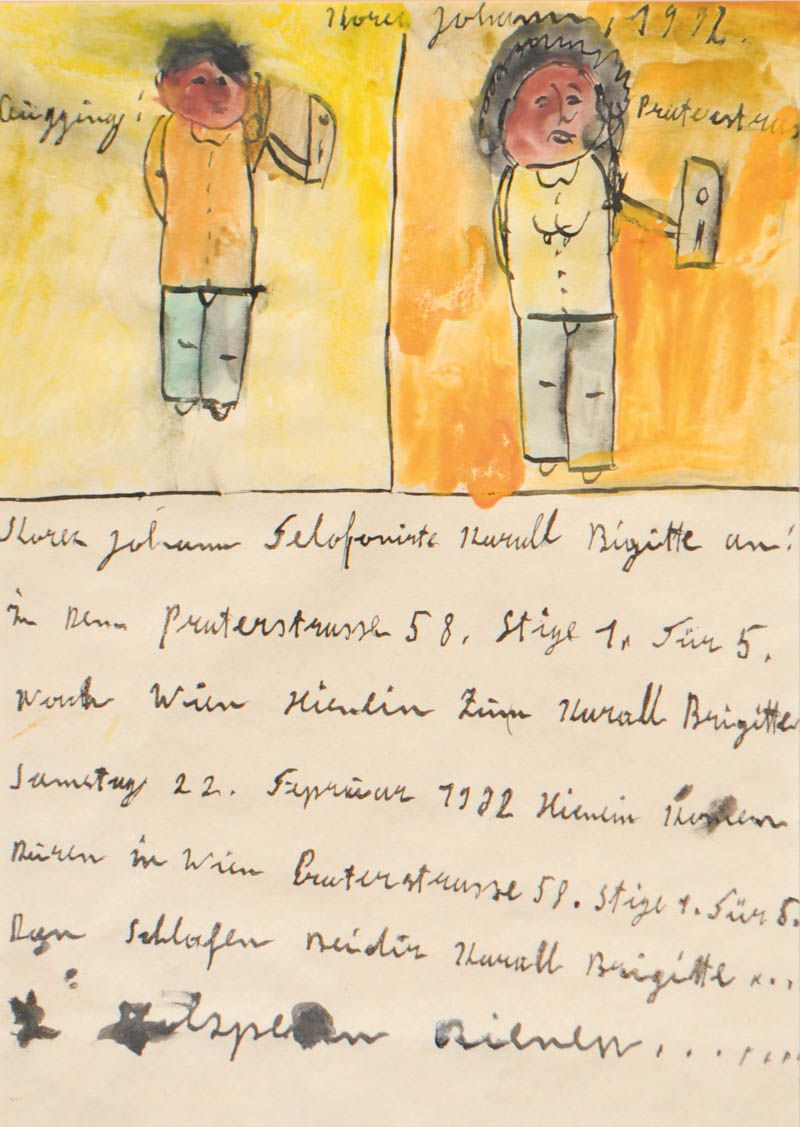 Korec Johann, 1992.
Gugging!
Praterstras
Korec Johann Telofonirte Karall Bigitte an!
in Den Praterstrasse 58. Stige 1. Tür 5.
Noch Wien Hienein Zum Karall Brigitte
Samstag 22. Feprüar 1992 Hienein Komen
Düren in Wien Praterstrasse 58. Stige 1. Tür 5.
Dan Schlafen Beidir Karall Brigitte ...